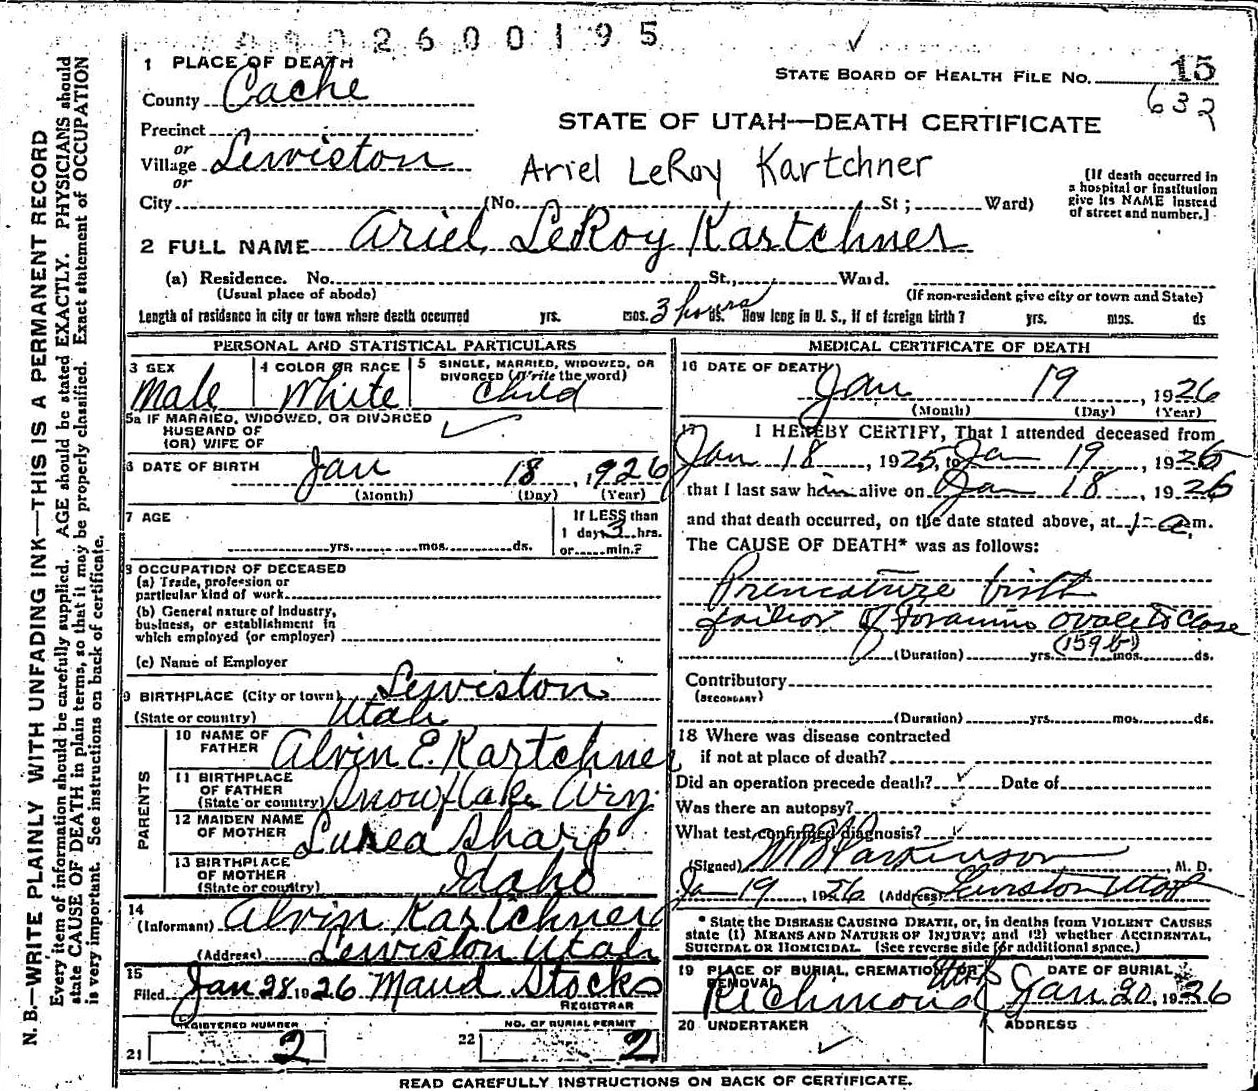 2600195
1 PLACE OF DEATH
STATE BOARD OF HEALTH FILE NO. 15
County Cache
632
Precinct
or
STATE OF UTAH—DEATH CERTIFICATE
Village Lewiston
or
Ariel LeRoy Kartchner
[If death occurred in a hospital or institution give its NAME instead of street and number.]
City (No. St; Ward)
2 FULL NAME Ariel LeRoy Kartchner
(a) Residence. No. St., Ward.
(Usual place of abode) (If non-resident give city or town and State)
Length of residence in city or town where death occurred yrs. mos. 3 hours ds. How long in U. S., if of foreign birth? yrs. mos. ds
PERSONAL AND STATISTICAL PARTICULARS
3 SEX Male
4 COLOR OR RACE White
5 SINGLE, MARRIED, WIDOWED, OR DIVORCED (Write the word) Child
5a IF MARRIED, WIDOWED, OR DIVORCED
HUSBAND OF
(OR) WIFE OF
6 DATE OF BIRTH Jan 18, 1926
(Month) (Day) (Year)
7 AGE yrs. mos. ds.
If LESS than
1 day 3 hrs.
or min.?
8 OCCUPATION OF DECEASED
(a) Trade, profession or
particular kind of work
(b) General nature of industry,
business, or establishment in
which employed (or employer)
(c) Name of Employer
9 BIRTHPLACE (City or town) Lewiston
(State or country) Utah
PARENTS
10 NAME OF FATHER Alvin E. Kartchner
11 BIRTHPLACE OF FATHER (State or country) Snowflake Ary.
12 MAIDEN NAME OF MOTHER Lunea Sharp
13 BIRTHPLACE OF MOTHER (State or country) Idaho
14
(Informant) Alvin Kartchner
(Address) Lewiston Utah
15
Filed Jan 28 1926 Maud Stocks
REGISTRAR
REGISTERED NUMBER
21 2
NO. OF BURIAL PERMIT
22 2
MEDICAL CERTIFICATE OF DEATH
16 DATE OF DEATH
Jan 19, 1926
(Month) (Day) (Year)
17 I HEREBY CERTIFY, That I attended deceased from
Jan 18, 1925, to Jan 19 1926
that I last saw him alive on Jan 18, 1926
and that death occurred, on the date stated above, at 1 a.m.
The CAUSE OF DEATH* was as follows:
Premature birth
failior of foramin ovale to close
(159b)
(Duration) yrs. mos. ds.
Contributory
(SECONDARY)
(Duration) yrs. mos. ds.
18 Where was disease contracted
if not at place of death?
Did an operation precede death? Date of
Was there an autopsy?
What test confirmed diagnosis?
(Signed) W B Parkinson M. D.
Jan 19, 1926 (Address) Lewiston Utah
* State the DISEASE CAUSING DEATH, or, in deaths from VIOLENT CAUSES
state (1) MEANS AND NATURE OF INJURY; and (2) whether ACCIDENTAL,
SUICIDAL OR HOMICIDAL. (See reverse side for additional space.)
19 PLACE OF BURIAL, CREMATION OR REMOVAL Richmond Utah
DATE OF BURIAL Jan 20, 1926
20 UNDERTAKER
ADDRESS
READ CAREFULLY INSTRUCTIONS ON BACK OF CERTIFICATE.
N. B.—WRITE PLAINLY WITH UNFADING INK—THIS IS A PERMANENT RECORD
Every item of information should be carefully supplied. AGE should be stated EXACTLY. PHYSICIANS should
state CAUSE OF DEATH in plain terms, so that it may be properly classified. Exact statement of OCCUPATION
is very important. See instructions on back of certificate.